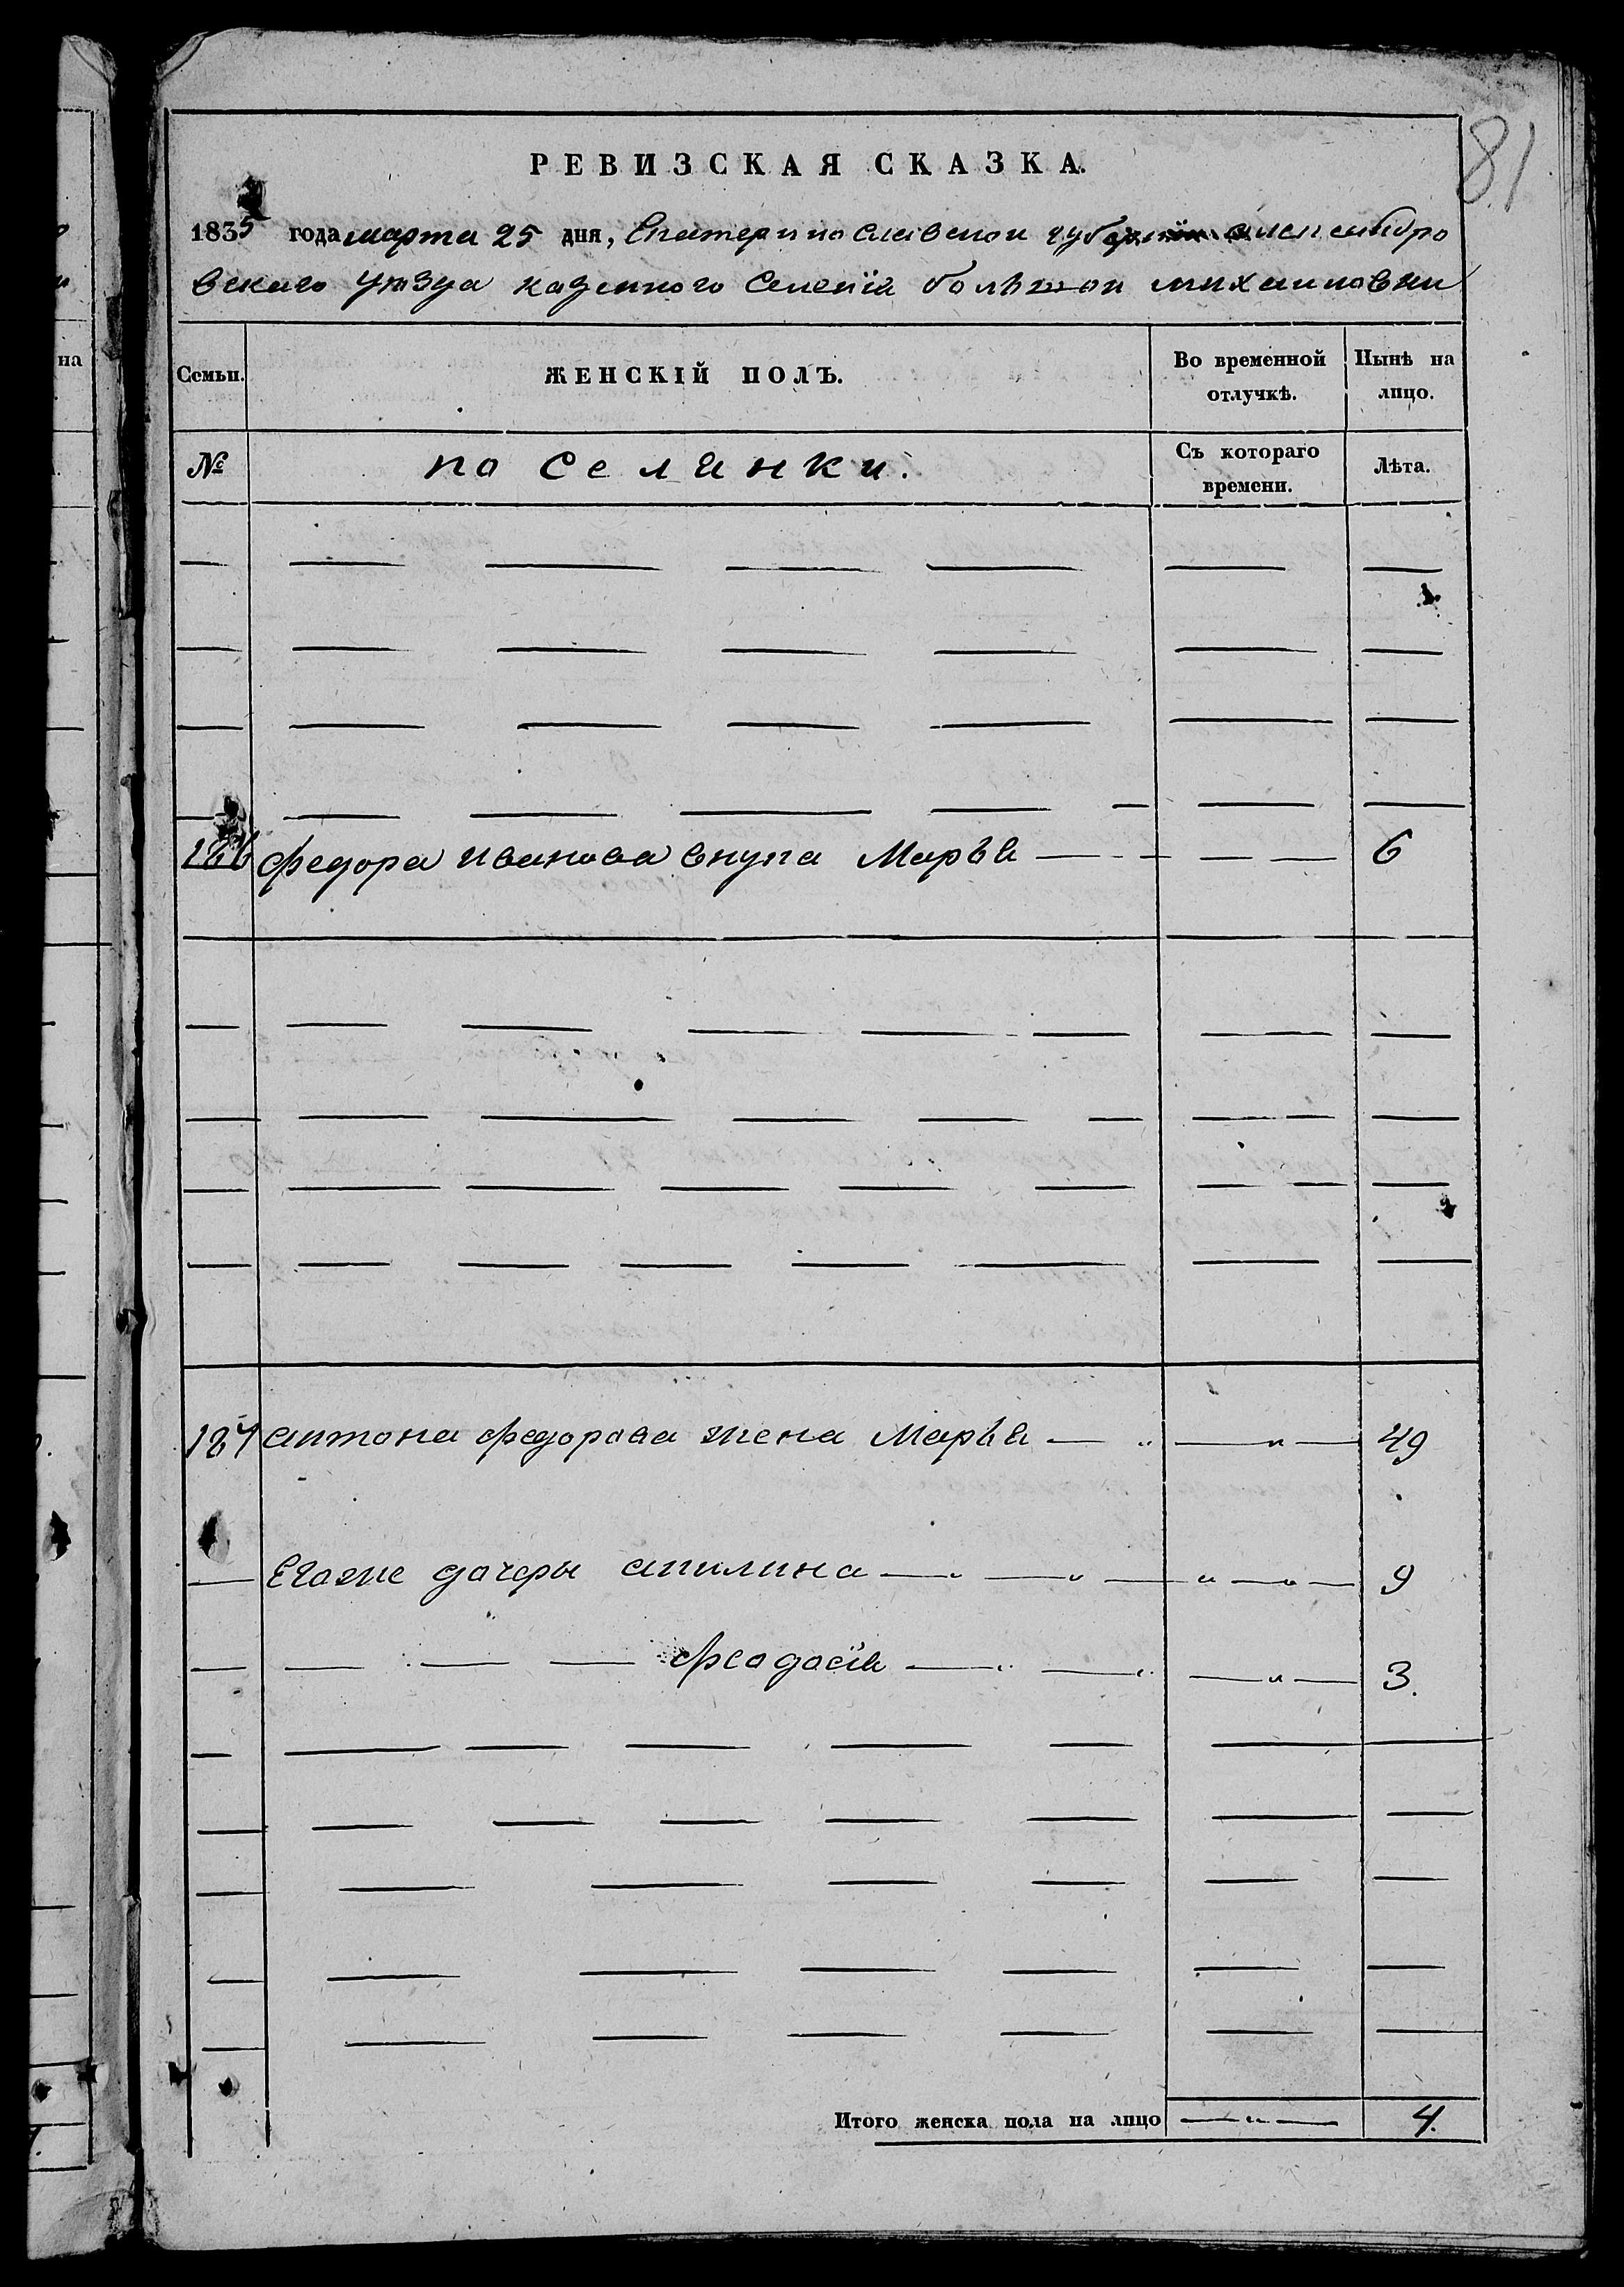 81
РЕВИЗСКАЯ СКАЗКА.
1835 года марта 25 дня, Екатеринославской губернїи александро
вскаго уѣзда казенного Селенїя больтой михаиловки
Семьи. ЖЕНСКІЙ ПОЛЪ. Во временной отлучкѣ. Нынѣ на лицо.
№ поселянки. Съ котораго времени. Лѣта.
186 федора иванова внука Марья 6
187 антона федорова жена Марья 49
Егоже дочеры акилина 9
феодосїя 3.
Итого женска пола на лицо 4.